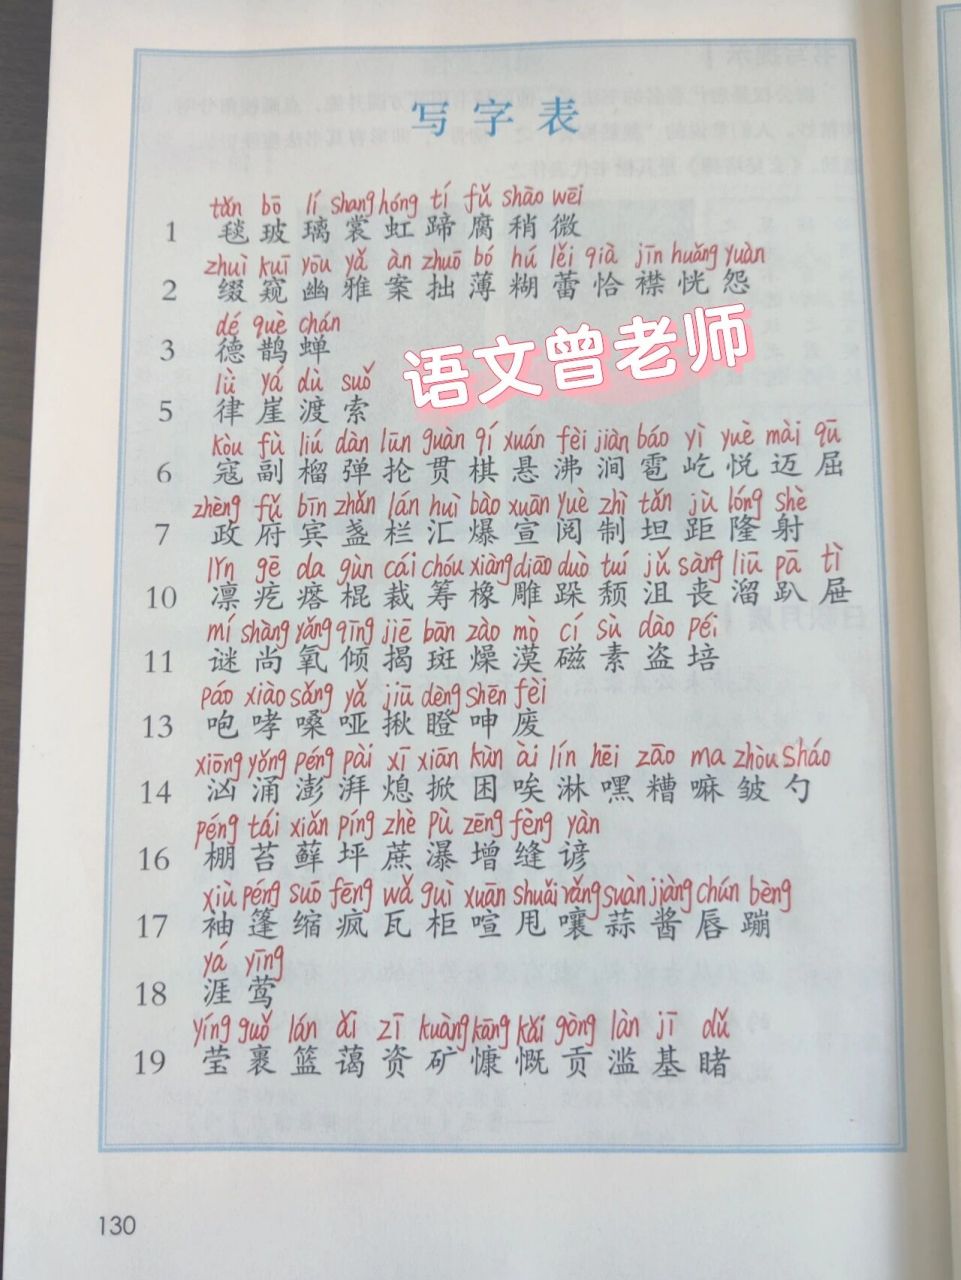 写字表
tǎn bō lí shang hóng tí fǔ shāo wēi
1 毯玻璃裳虹蹄腐稍微
zhuì kuī yōu yǎ àn zhuō bó hú lěi qià jīn huǎng yuàn
2 缀窥幽雅案拙薄糊蕾恰襟恍怨
dé què chán
3 德鹊蝉
语文曾老师
lǜ yá dù suǒ
5 律崖渡索
kòu fù liú dàn lūn guàn qí xuán fèi jiàn báo yì yuè mài qū
6 寇副榴弹抡贯棋悬沸涧雹屹悦迈屈
zhèng fǔ bīn zhǎn lán huì bào xuān yuè zhì tǎn jù lóng shè
7 政府宾盏栏汇爆宣阅制坦距隆射
lǐn gē da gùn cái chóu xiàng diāo duò tuí jǔ sàng liū pā tì
10 凛疙瘩棍裁筹橡雕跺颓沮丧溜趴屉
mí shàng yǎng qīng jiē bān zào mò cí sù dào péi
11 谜尚氧倾揭斑燥漠磁素盗培
páo xiào sǎng yǎ jiū dèng shēn fèi
13 咆哮嗓哑揪瞪呻废
xiōng yǒng péng pài xī xiān kùn ài lín hēi zāo ma zhòu sháo
14 汹涌澎湃熄掀困唉淋嘿糟嘛皱勺
péng tái xiǎn píng zhè pù zēng fèng yàn
16 棚苔藓坪蔗瀑增缝谚
xiù péng suō fēng wǎ guì xuān shuǎi rǎng suàn jiàng chún bèng
17 袖篷缩疯瓦柜喧甩嚷蒜酱唇蹦
yá yīng
18 涯莺
yíng guǒ lán ǎi zī kuàng kāng kǎi gòng làn jī dǔ
19 莹裹篮蔼资矿慷慨贡滥基睹
130